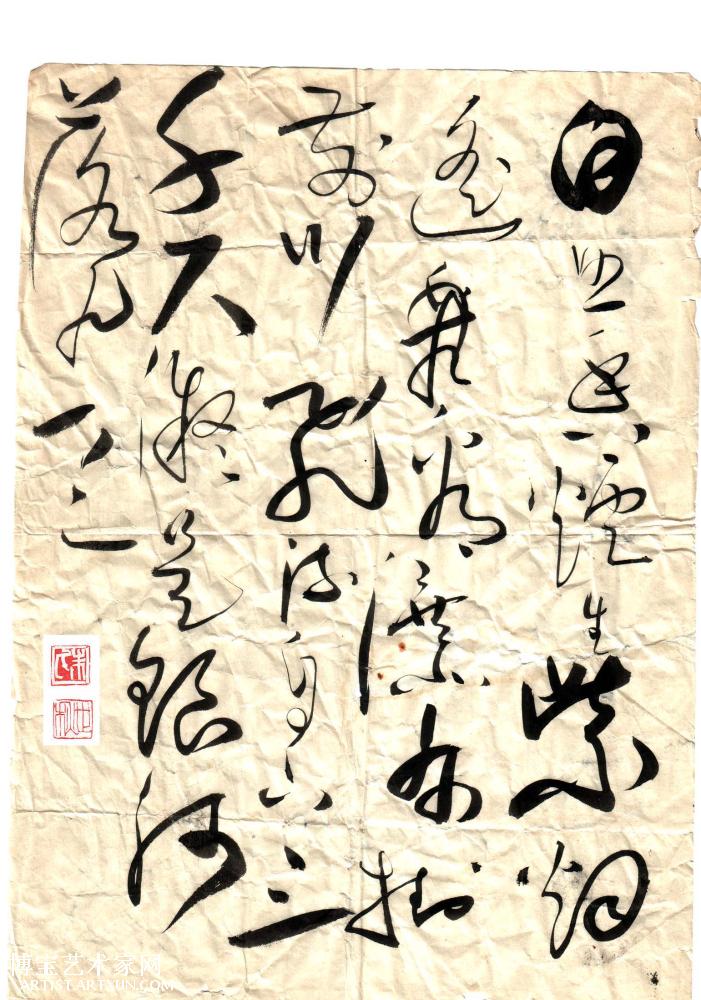 日照香爐生紫烟
遙看瀑布掛
前川飛流直下三
千尺疑是銀河
落九天
博宝艺术家网
ARTIST.ARTXUN.COM